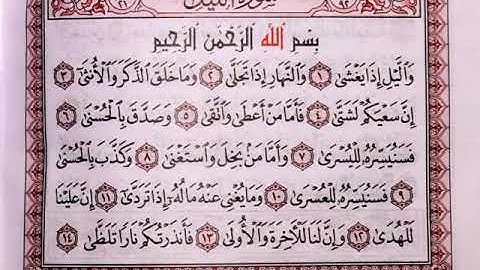 بِسْمِ ٱللَّهِ ٱلرَّحْمَٰنِ ٱلرَّحِيمِ
وَٱلَّيْلِ إِذَا يَغْشَىٰ ١ وَٱلنَّهَارِ إِذَا تَجَلَّىٰ ٢ وَمَا خَلَقَ ٱلذَّكَرَ وَٱلْأُنثَىٰ ٣
إِنَّ سَعْيَكُمْ لَشَتَّىٰ ٤ فَأَمَّا مَنْ أَعْطَىٰ وَٱتَّقَىٰ ٥ وَصَدَّقَ بِٱلْحُسْنَىٰ ٦
فَسَنُيَسِّرُهُۥ لِلْيُسْرَىٰ ٧ وَأَمَّا مَنۢ بَخِلَ وَٱسْتَغْنَىٰ ٨ وَكَذَّبَ بِٱلْحُسْنَىٰ
٩ فَسَنُيَسِّرُهُۥ لِلْعُسْرَىٰ ١٠ وَمَا يُغْنِى عَنْهُ مَالُهُۥٓ إِذَا تَرَدَّىٰٓ ١١ إِنَّ عَلَيْنَا
لَلْهُدَىٰ ١٢ وَإِنَّ لَنَا لَلْـَٔاخِرَةَ وَٱلْأُولَىٰ ١٣ فَأَنذَرْتُكُمْ نَارًا تَلَظَّىٰ ١٤